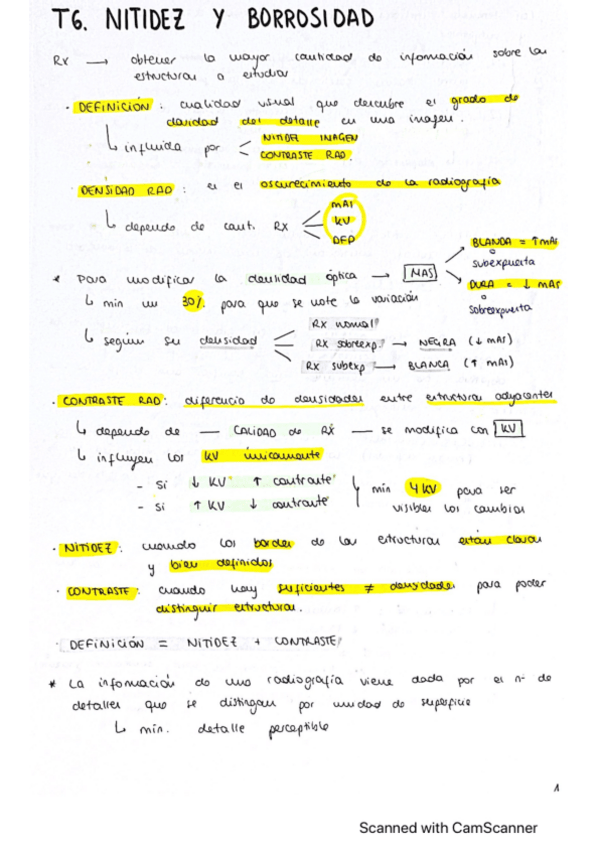 T6. NITIDEZ Y BORROSIDAD
Rx → obtener la mayor cantidad de información sobre las
estructuras a estudiar
· DEFINICIÓN: cualidad visual que descubre el grado de
claridad del detalle en una imagen.
↳ influida por < NITIDEZ IMAGEN
CONTRASTE RAD.
DENSIDAD RAD: es el oscurecimiento de la radiografía
↳ depende de cant. Rx mAs
KV
DFP
* Para modificar la densidad óptica → MAS
BLANDA = ↑ mAs
subexpuesta
DURA = ↓ mAs
sobreexpuesta
↳ min un 30% para que se note la variación
↳ según su densidad
Rx normal
Rx sobreexp. → NEGRA (↓ mAs)
Rx subexp → BLANCA (↑ mAs)
· CONTRASTE RAD: diferencia de densidades entre estructuras adyacentes
↳ depende de — CALIDAD de RX — se modifica con KV
↳ influyen los KV únicamente
- Si ↓ KV ↑ contraste
- Si ↑ KV ↓ contraste
min 4 KV para ser
visibles los cambios
· NITIDEZ: cuando los bordes de las estructuras están claros
y bien definidos
· CONTRASTE: cuando hay suficientes ≠ densidades para poder
distinguir estructuras.
· DEFINICIÓN = NITIDEZ + CONTRASTE
* La información de una radiografía viene dada por el nº de
detalles que se distinguen por unidad de superficie
↳ min. detalle perceptible
1
Scanned with CamScanner